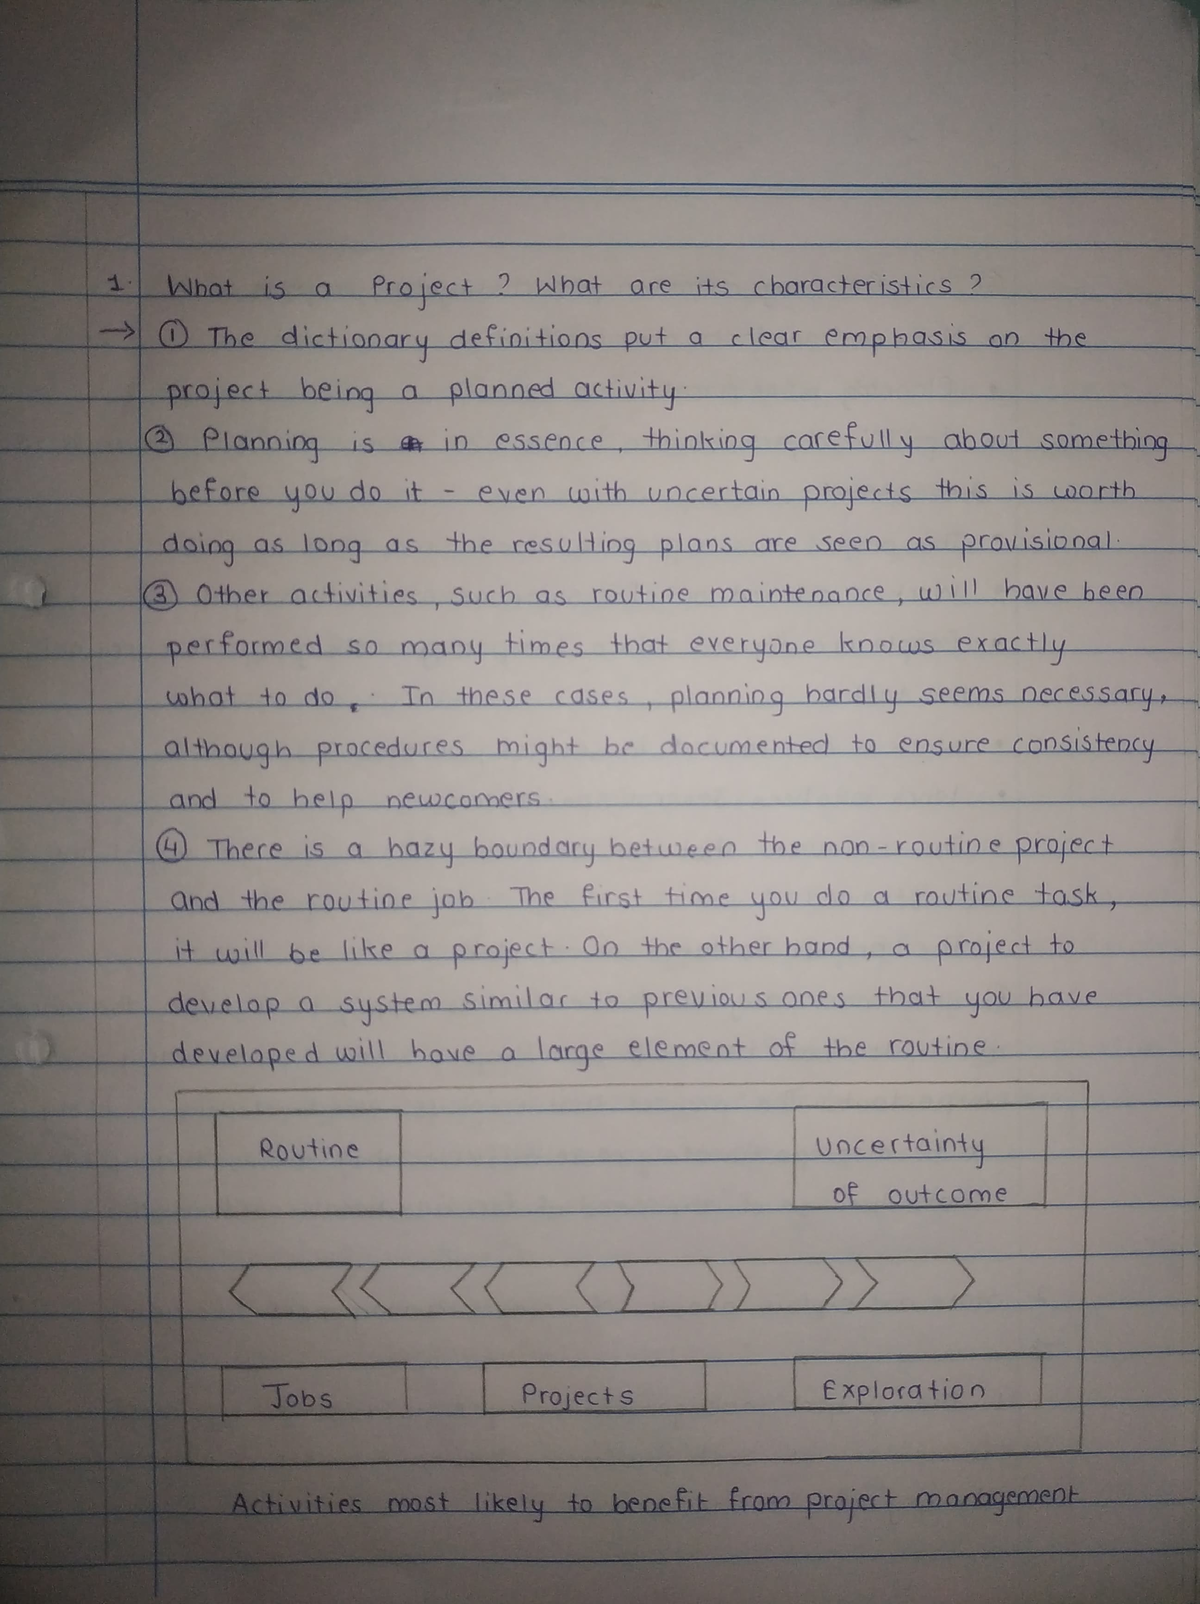 1. What is a Project ? What are its characteristics ?
→ ① The dictionary definitions put a clear emphasis on the
project being a planned activity.
② Planning is in essence, thinking carefully about something
before you do it - even with uncertain projects this is worth
doing as long as the resulting plans are seen as provisional.
③ Other activities, such as routine maintenance, will have been
performed so many times that everyone knows exactly
what to do. In these cases, planning hardly seems necessary,
although procedures might be documented to ensure consistency
and to help newcomers.
④ There is a hazy boundary between the non-routine project
and the routine job. The first time you do a routine task,
it will be like a project. On the other hand, a project to
develop a system similar to previous ones that you have
developed will have a large element of the routine.
Routine
Uncertainty
of outcome
Jobs
Projects
Exploration
Activities most likely to benefit from project management